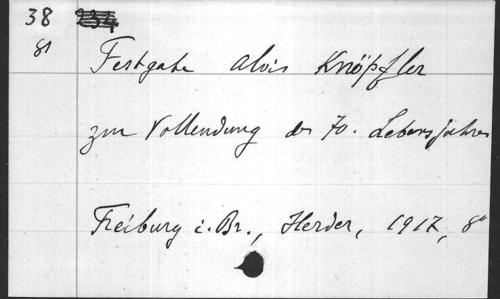 38 234
81
Festgabe Alois Knöpfler
zur Vollendung des 70. Lebensjahres
Freiburg i. Br., Herder, 1917, 8°